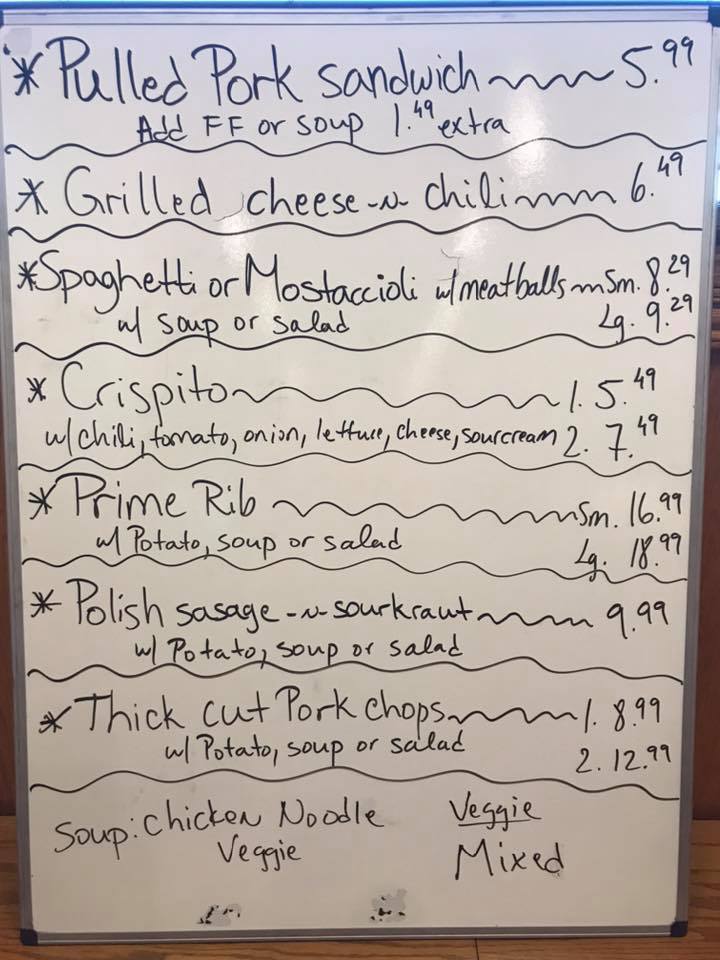 * Pulled Pork sandwich 5.99
Add FF or soup 1.49 extra
* Grilled cheese -n- chili 6.49
* Spaghetti or Mostaccioli w/ meatballs Sm. 8.29
w/ soup or salad Lg. 9.29
* Crispito 1. 5.49
w/ chili, tomato, onion, lettuce, cheese, sourcream 2. 7.49
* Prime Rib Sm. 16.99
w/ Potato, soup or salad Lg. 18.99
* Polish sasage -n- sourkraut 9.99
w/ Potato, soup or salad
* Thick cut Pork chops 1. 8.99
w/ Potato, soup or salad 2. 12.99
Soup: Chicken Noodle Veggie
Veggie Mixed